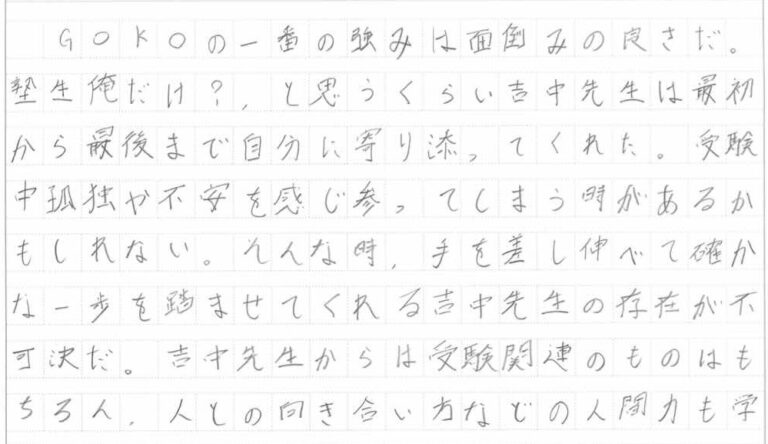 GOKOの一番の強みは面倒みの良さだ。
塾生俺だけ?,と思うくらい吉中先生は最初
から最後まで自分に寄り添ってくれた。受験
中孤独や不安を感じ参ってしまう時があるか
もしれない。そんな時,手を差し伸べて確か
な一歩を踏ませてくれる吉中先生の存在が不
可決だ。吉中先生からは受験関連のものはも
ちろん,人との向き合い方などの人間力も学